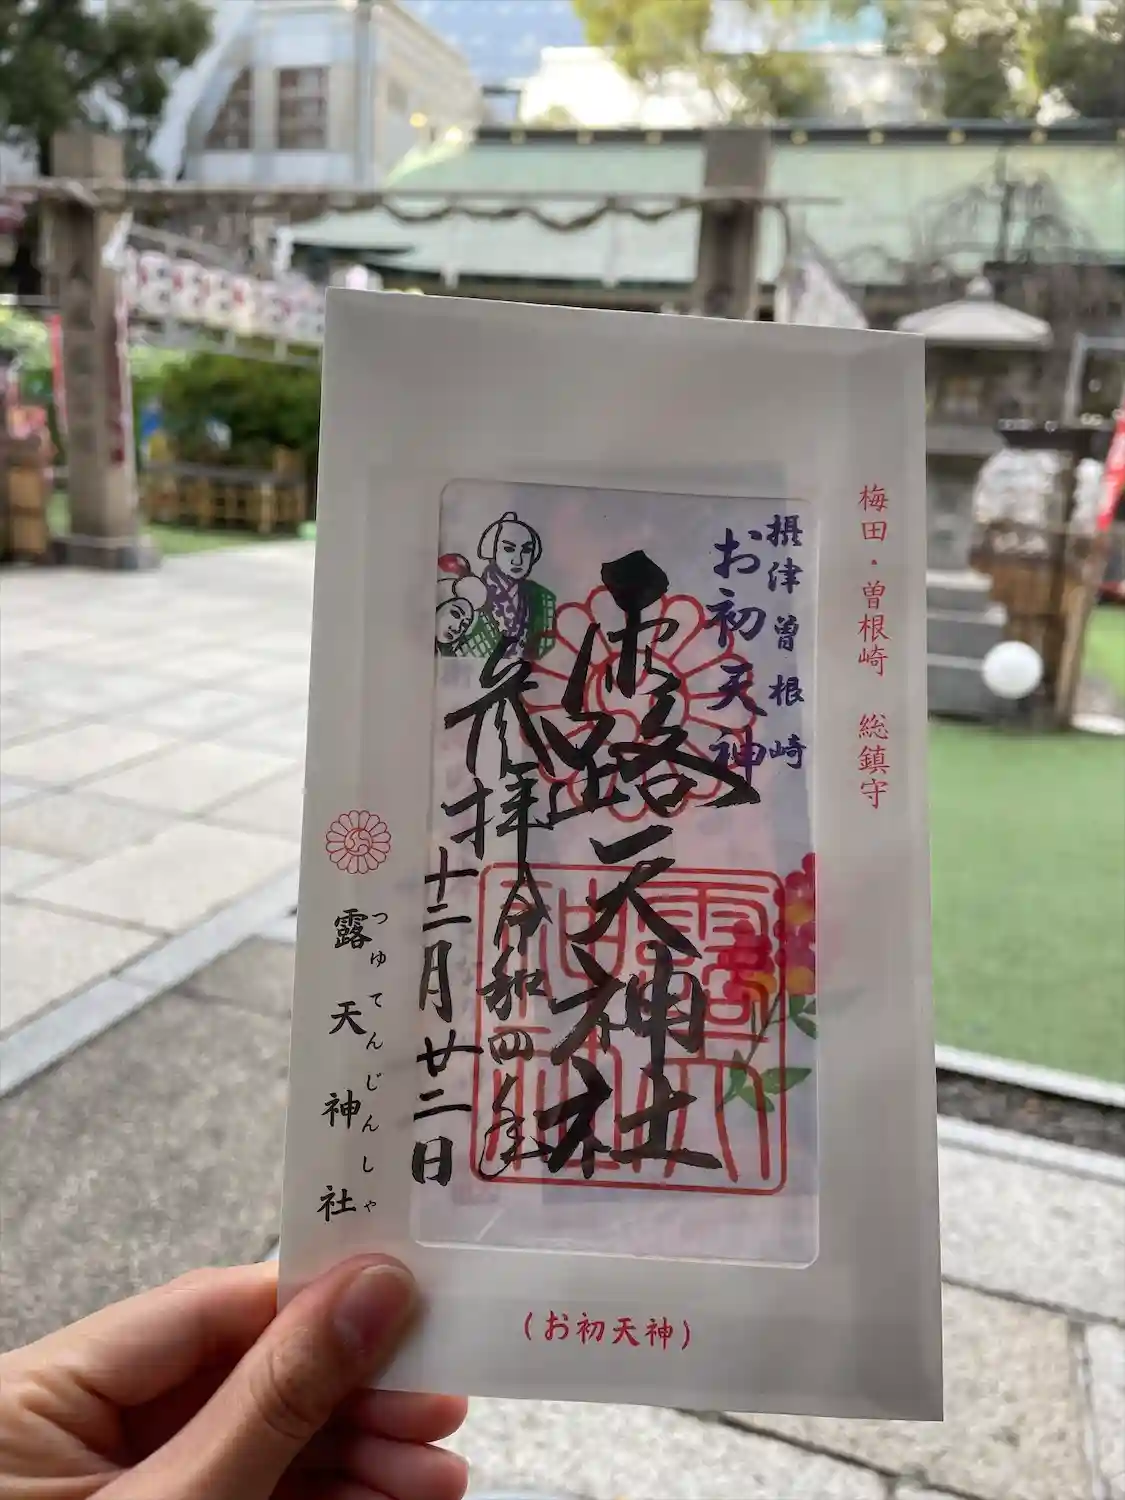 梅田・曽根崎 総鎮守
摂津曽根崎
お初天神
露天神社
参拝令和四年
十二月廿二日
露天神社
つゆてんじんしゃ
(お初天神)